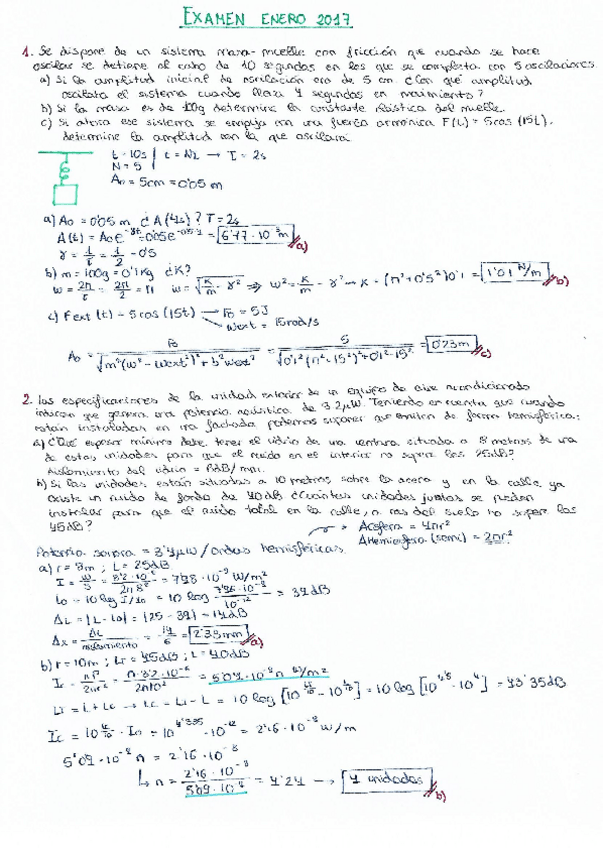 EXAMEN ENERO 2017
1. Se dispone de un sistema masa-muelle con fricción que cuando se hace
oscilar se detiene al cabo de 10 segundos en los que se completa con 5 oscilaciones
a) Si la amplitud inicial de oscilación era de 5 cm ¿Con qué amplitud
oscilaba el sistema cuando lleva 4 segundos en movimiento?
b) Si la masa es de 100g determine la constante elástica del muelle.
c) Si ahora ese sistema se empuja con una fuerza armónica F(t) = 5cos(15t).
determine la amplitud con la que oscilará
t = 10s | t = N·T → T = 2s
N = 5
A₀ = 5cm = 0'05 m
a) A₀ = 0'05 m ¿A(4s)? T = 2s
A(t) = A₀e = 0'05e = 6'77·10⁻³m a)
γ = 1/τ = 1/2 = 0'5
b) m = 100g = 0'1Kg ¿K?
ω = 2π/T = 2π/2 = π ω = √(K/m - γ²) ⇒ ω² = K/m - γ² → K = (π² + 0'5²)0'1 = 1'01 N/m b)
c) Fext (t) = 5cos(15t) → F₀ = 5
ωext = 15rad/s
A₀ = F₀/√(m²(ω² - ωext²)² + b²ωext²) = 5/√(0'1²(π² - 15²)² + 0'1²·15²) = 0'23m c)
2. Las especificaciones de la unidad exterior de un equipo de aire acondicionado
indican que genera una potencia acústica de 3'2μW. Teniendo en cuenta que cuando
están instaladas en una fachada podemos suponer que emiten de forma hemisférica:
a) ¿Qué espesor mínimo debe tener el vidrio de una ventana situada a 8 metros de una
de estas unidades para que el ruido en el interior no supere los 25dB?
Aislamiento del vidrio = 6dB/mm.
b) Si las unidades están situadas a 10 metros sobre la acera y en la calle ya
existe un ruido de fondo de 40dB ¿Cuántas unidades juntas se pueden
instalar para que el ruido total en la calle, a ras del suelo no supere los
45dB?
Aesfera = 4πr²
Potencia sonora = 3'2μW/ondas hemisféricas. Ahemisfera (semi) = 2πr²
a) r = 8m ; L = 25dB
I = W/S = 3'2·10⁻⁶/2π8² = 7'96·10⁻⁹ W/m²
L₀ = 10 log I/I₀ = 10 log 7'96·10⁻⁹/10⁻¹² = 39dB
ΔL = |L - L₀| = |25 - 39| = 14dB
Δx = ΔL/aislamiento = 14/6 = 2'33mm a)
b) r = 10m ; LT = 45dB ; L = 40dB
= 5'09·10⁻⁹n W/m²
= 10 log [10⁴'⁵ - 10⁴] = 43'35dB
= 10⁴'³³⁵·10⁻¹² = 2'16·10⁻⁸ W/m
5'09·10⁻⁹ n = 2'16·10⁻⁸
↳ n = 2'16·10⁻⁸/5'09·10⁻⁹ = 4'24 → 4 unidades b)